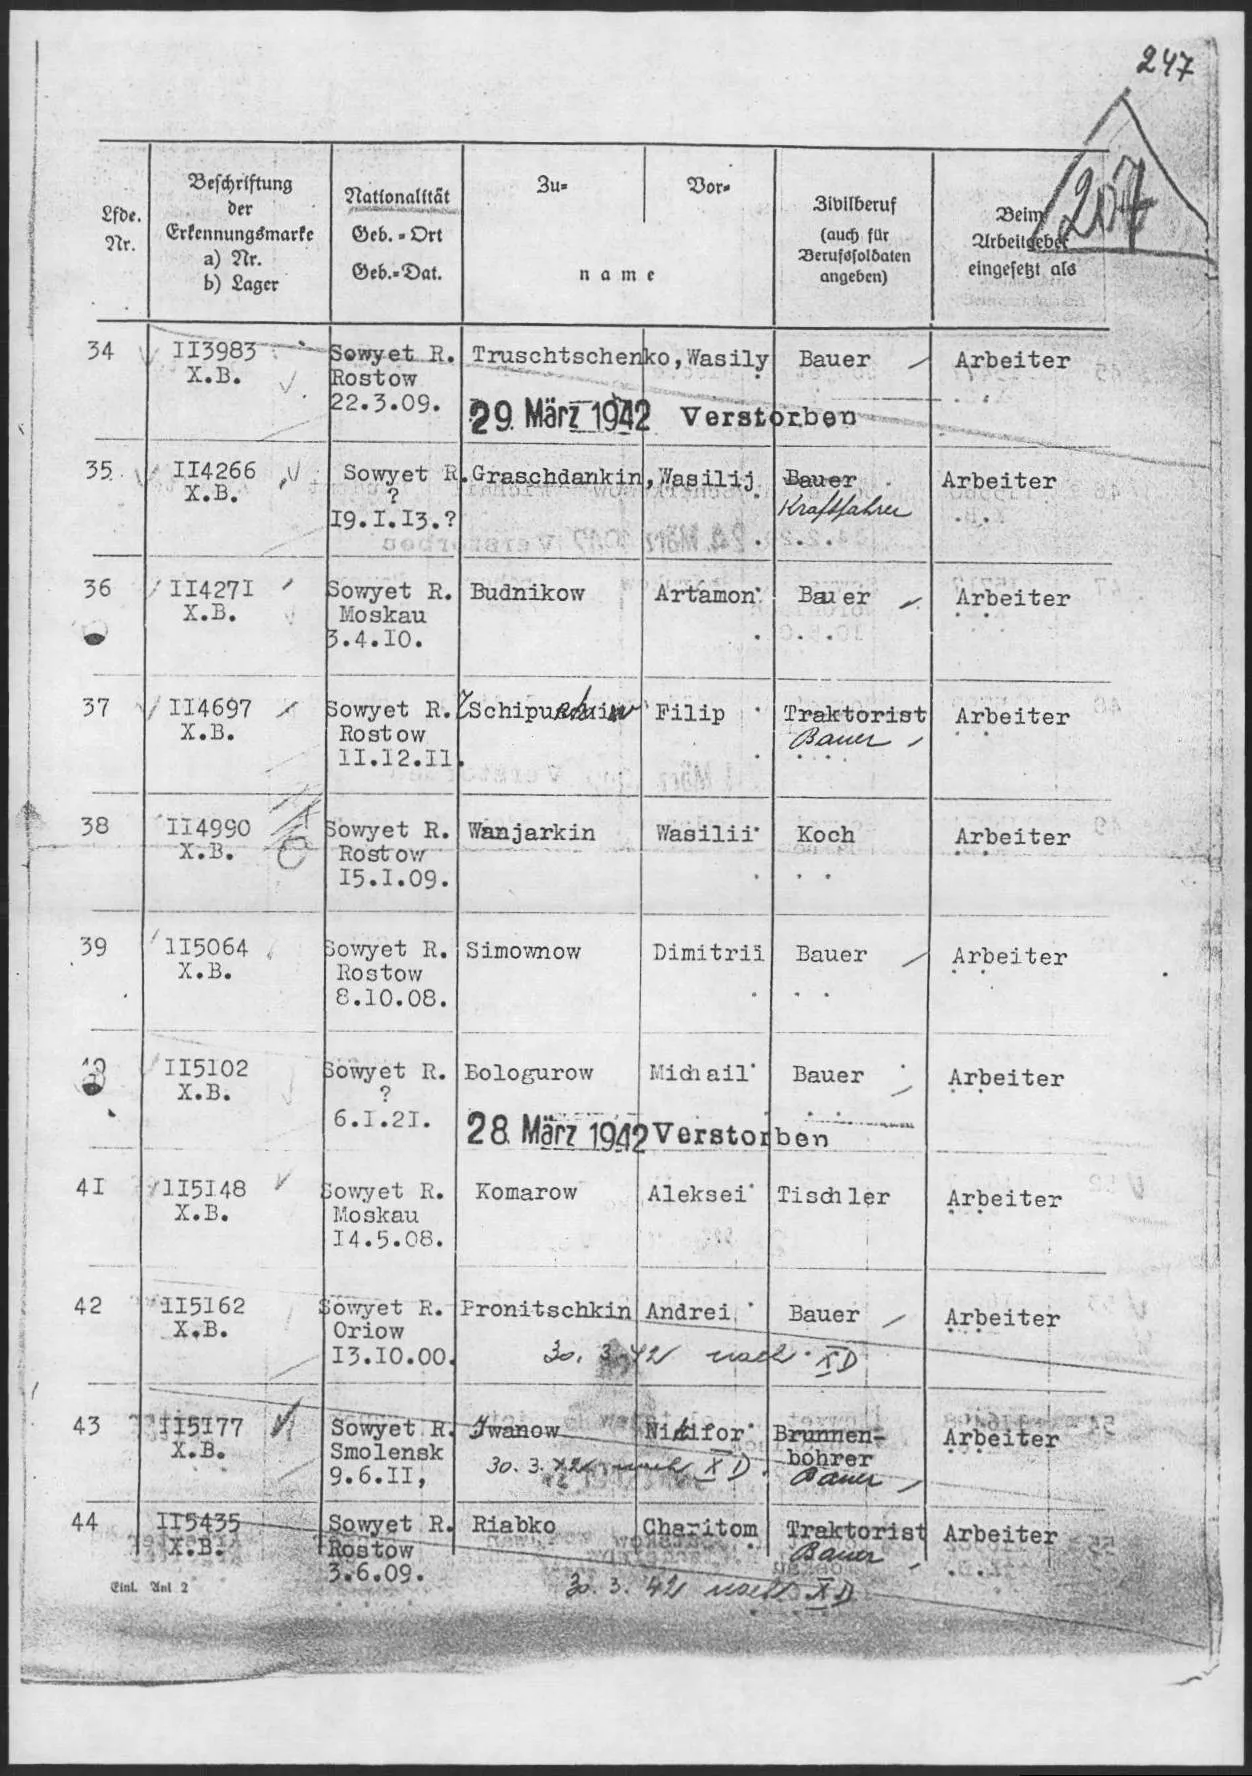 247
207
Lfde. Nr.
Beschriftung der Erkennungsmarke a) Nr. b) Lager
Nationalität Geb.-Ort Geb.-Dat.
Zu- Vor-
n a m e
Zivilberuf (auch für Berufssoldaten angeben)
Beim Arbeitgeber eingesetzt als
34 II3983 Sowyet R. Truschtschenko, Wasily Bauer Arbeiter
X.B. Rostow
22.3.09. 29. März 1942 Verstorben
35. II4266 Sowyet R. Graschdankin, Wasilij Bauer Arbeiter
X.B. ? Kraftfahrer
19.I.I3.?
36 II427I Sowyet R. Budnikow Artamon Bauer Arbeiter
X.B. Moskau
3.4.IO.
37 II4697 Sowyet R. Filip Traktorist Arbeiter
X.B. Rostow Bauer
II.I2.II.
38 II4990 Sowyet R. Wanjarkin Wasilii Koch Arbeiter
X.B. Rostow
I5.I.09.
39 II5064 Sowyet R. Simownow Dimitrii Bauer Arbeiter
X.B. Rostow
8.IO.08.
40 II5102 Sowyet R. Bologurow Michail Bauer Arbeiter
X.B. ?
6.I.2I. 28. März 1942 Verstorben
4I II5I48 Sowyet R. Komarow Aleksei Tischler Arbeiter
X.B. Moskau
I4.5.08.
42 II5I62 Sowyet R. Pronitschkin Andrei Bauer Arbeiter
X.B. Oriow
I3.IO.00. 30. 3. 42 nach XD
43 II5I77 Sowyet R. Iwanow Nikifor Brunnen-
X.B. Smolensk bohrer Arbeiter
9.6.II, 30. 3. 42 nach XD. Bauer
44 II5435 Sowyet R. Riabko Charitom Traktorist Arbeiter
X.B. Rostow Bauer
3.6.09. 30. 3. 42 nach XD
Einl. Anl 2